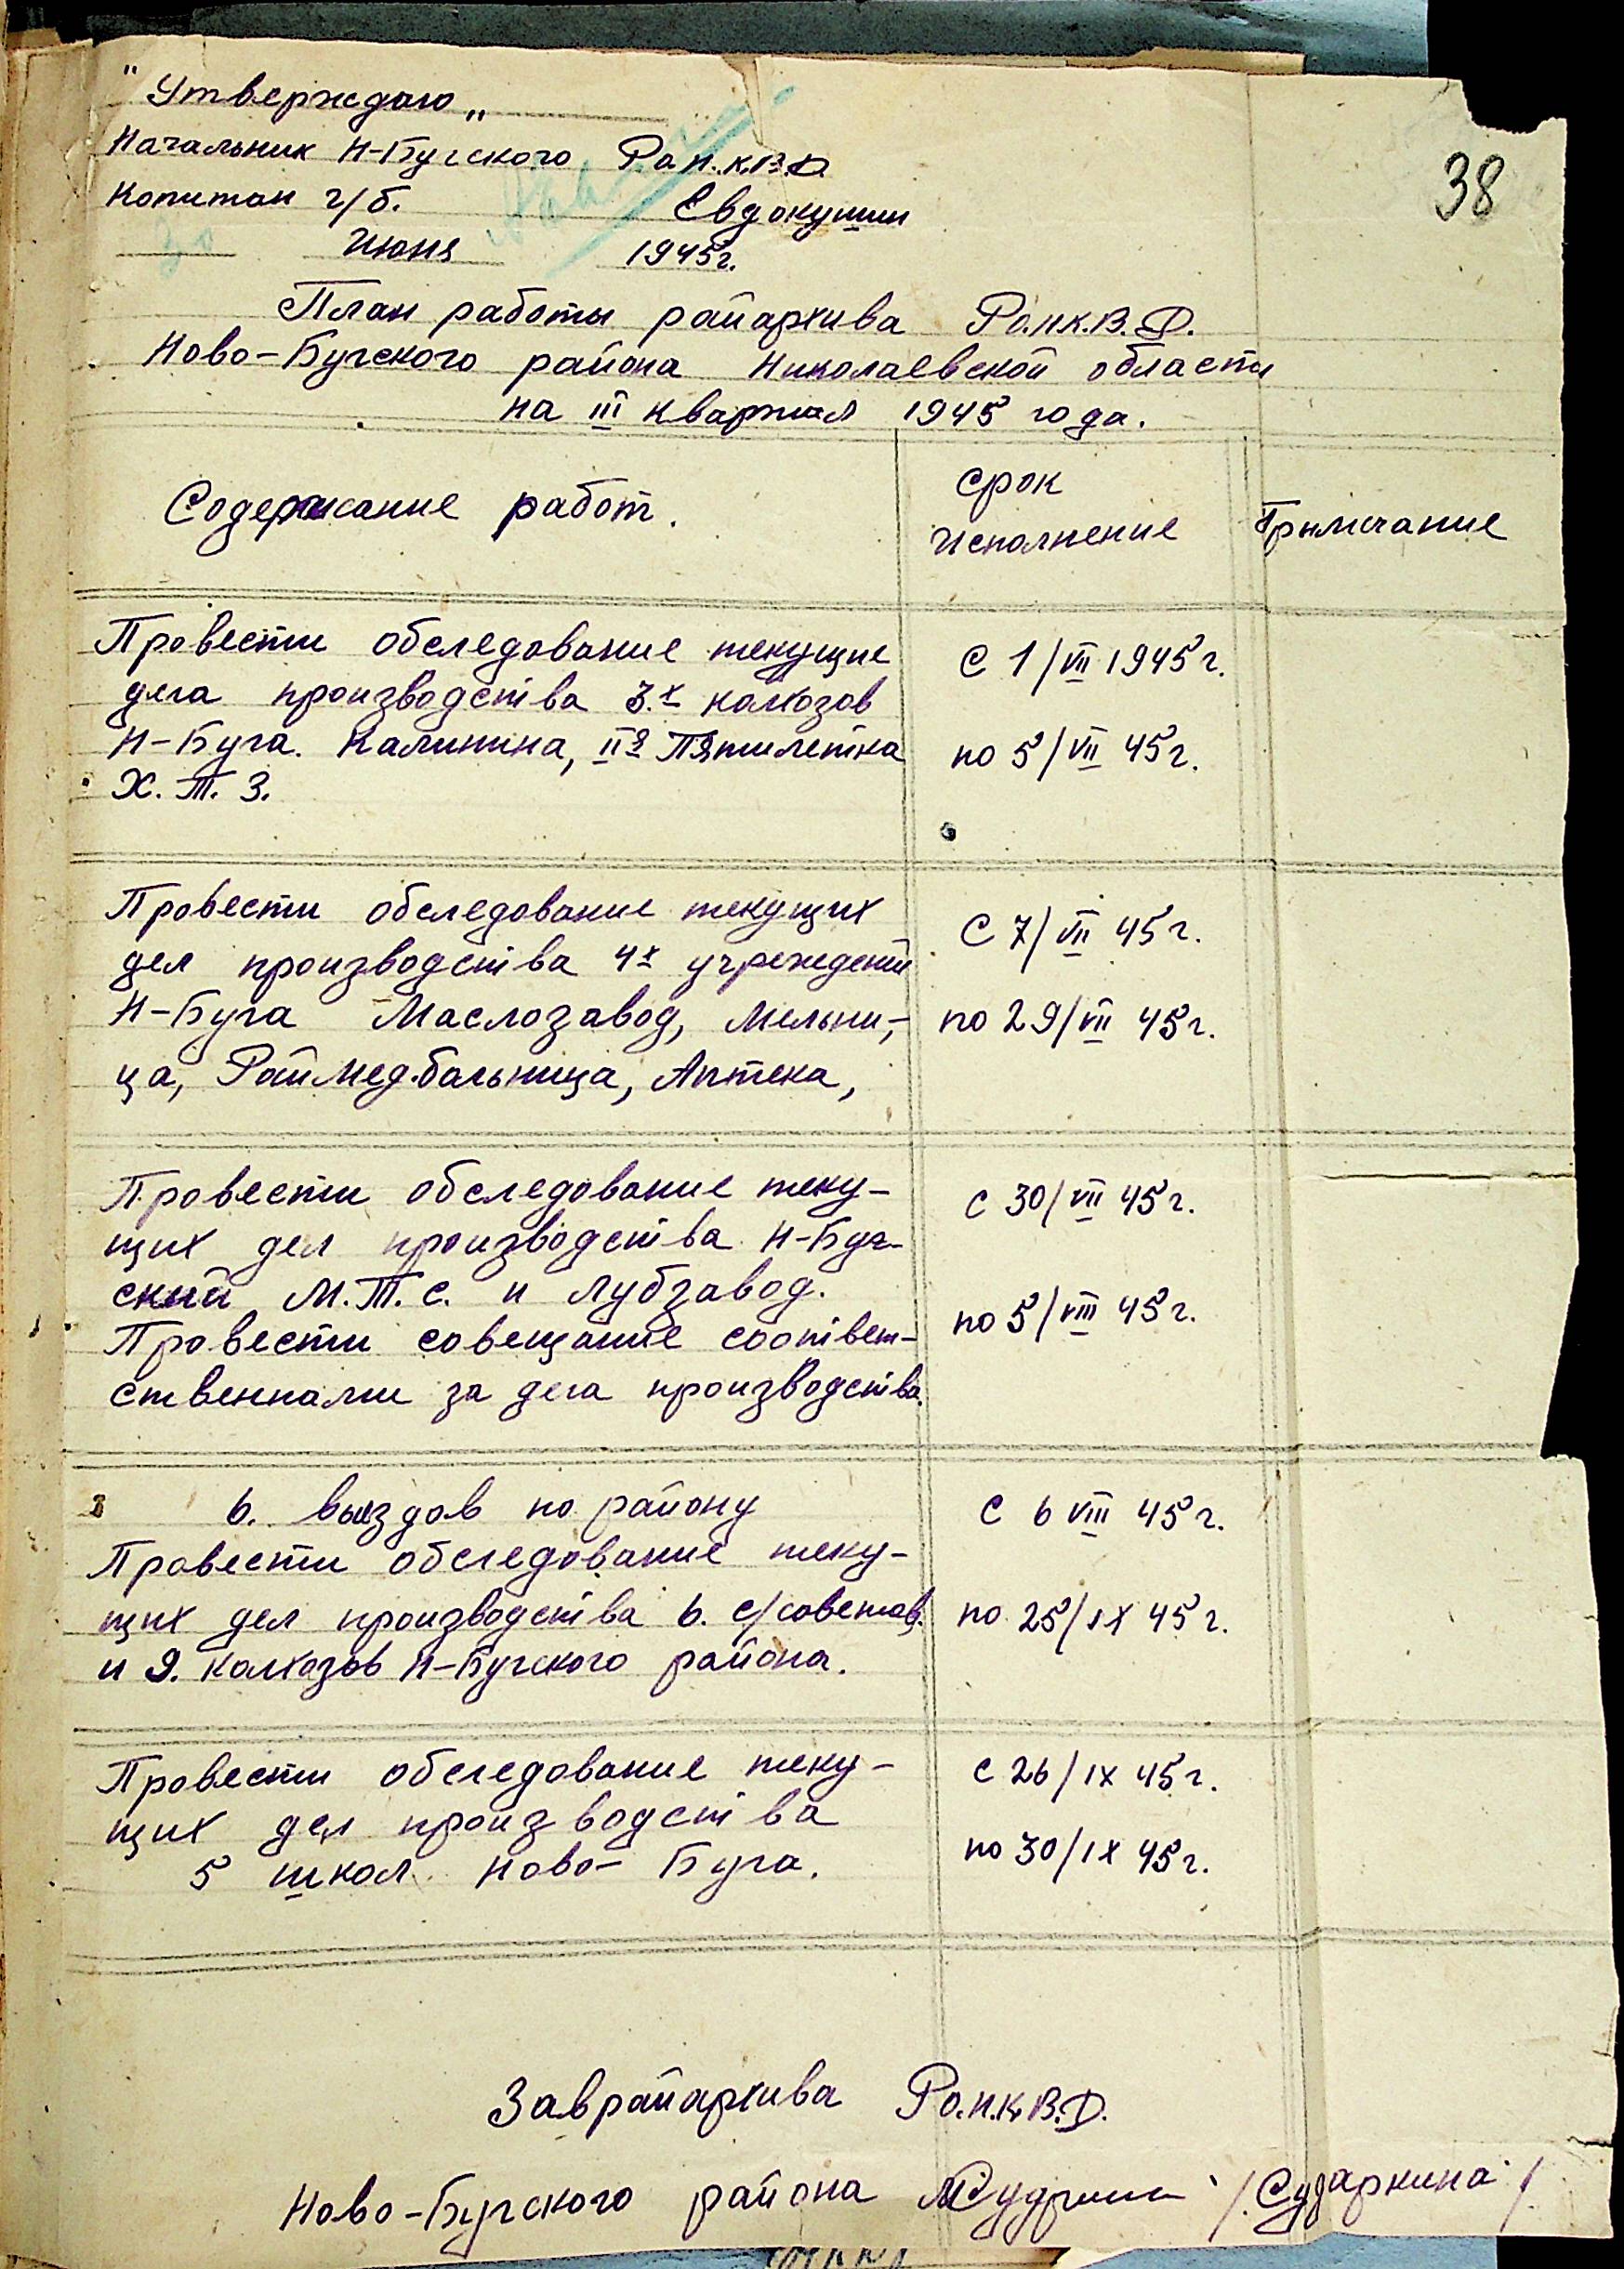 "Утверждаю„
38
Начальник Н-Бугского Ра Н.К.В.Д
Копитан г/б. Евдокушин
30 Июня 1945г.
План работы райархива Ро.НК.В.Д.
Ново-Бугского района Николаевской области
на III квартал 1945 года.
Содержание работ.
срок
исполнение
Примечание
Провести обследование текущие
дела производства 3х колхозов
Н-Буга. Калинина, IIя Пятилетка
Х.Т.З.
С 1/VII 1945г.
по 5/VII 45г.
Провести обследование текущих
дел производства 4х учреждений
Н-Буга Маслозавод, Мельни-
ца, Раймед.больница, Аптека,
С 7/VII 45г.
по 29/VII 45г.
Провести обследование теку-
щих дел производства Н-Буг-
ский М.Т.С. и Лубзавод.
Провести совещание соответ-
ственнами за дела производства.
с 30/VII 45г.
по 5/VIII 45г.
6. выездов по району
Провести обследование теку-
щих дел производства 6. с/советов.
и 9. колхозов Н-Бугского района.
С 6 VIII 45г.
по 25/IX 45г.
Провести обследование теку-
щих дел производства
5 школ Ново-Буга.
с 26/IX 45г.
по 30/IX 45г.
Заврайархива Ро.Н.К.В.Д.
Ново-Бугского района /Сударкина/